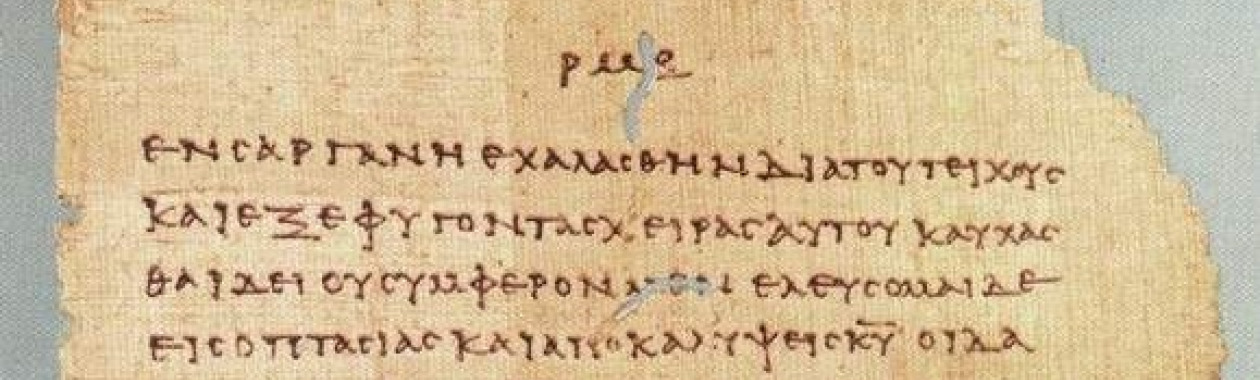 ρμε
ΕΝ ϹΑΡΓΑΝΗ ΕΧΑΛΑϹΘΗΝ ΔΙΑ ΤΟΥ ΤΕΙΧΟΥϹ
ΚΑΙ ΕΞΕΦΥΓΟΝ ΤΑϹ ΧΕΙΡΑϹ ΑΥΤΟΥ ΚΑΥΧΑϹ
ΘΑΙ ΔΕΙ ΟΥ ϹΥΜΦΕΡΟΝ ΕΛΕΥϹΟΜΑΙ ΔΕ
ΕΙϹ ΟΠΤΑϹΙΑϹ ΚΑΙ ΑΠΟΚΑΛΥΨΕΙϹ Κ̅Υ̅ ΟΙΔΑ